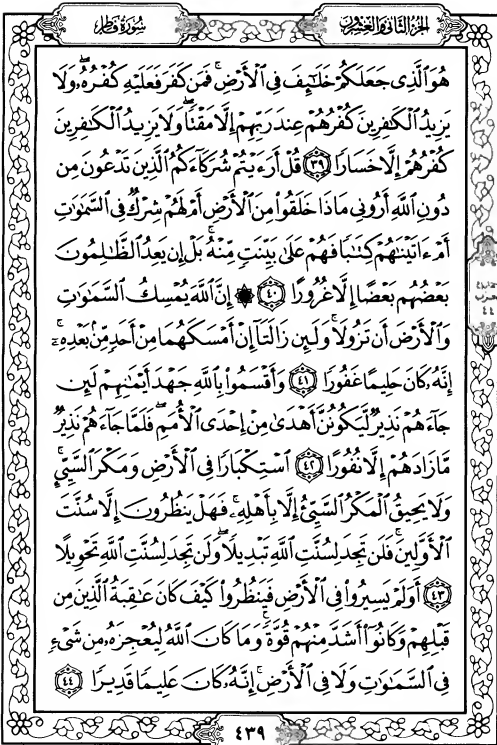 الجزء الثاني والعشرون
سورة فاطر
هُوَ ٱلَّذِى جَعَلَكُمْ خَلَـٰٓئِفَ فِى ٱلْأَرْضِ ۚ فَمَن كَفَرَ فَعَلَيْهِ كُفْرُهُۥ ۖ وَلَا
يَزِيدُ ٱلْكَـٰفِرِينَ كُفْرُهُمْ عِندَ رَبِّهِمْ إِلَّا مَقْتًا ۖ وَلَا يَزِيدُ ٱلْكَـٰفِرِينَ
كُفْرُهُمْ إِلَّا خَسَارًا ٣٩ قُلْ أَرَءَيْتُمْ شُرَكَآءَكُمُ ٱلَّذِينَ تَدْعُونَ مِن
دُونِ ٱللَّهِ أَرُونِى مَاذَا خَلَقُوا۟ مِنَ ٱلْأَرْضِ أَمْ لَهُمْ شِرْكٌ فِى ٱلسَّمَـٰوَٰتِ
أَمْ ءَاتَيْنَـٰهُمْ كِتَـٰبًا فَهُمْ عَلَىٰ بَيِّنَتٍ مِّنْهُ ۚ بَلْ إِن يَعِدُ ٱلظَّـٰلِمُونَ
بَعْضُهُم بَعْضًا إِلَّا غُرُورًا ٤٠ ۞ إِنَّ ٱللَّهَ يُمْسِكُ ٱلسَّمَـٰوَٰتِ
وَٱلْأَرْضَ أَن تَزُولَا ۚ وَلَئِن زَالَتَآ إِنْ أَمْسَكَهُمَا مِنْ أَحَدٍ مِّنۢ بَعْدِهِۦٓ ۚ
إِنَّهُۥ كَانَ حَلِيمًا غَفُورًا ٤١ وَأَقْسَمُوا۟ بِٱللَّهِ جَهْدَ أَيْمَـٰنِهِمْ لَئِن
جَآءَهُمْ نَذِيرٌ لَّيَكُونُنَّ أَهْدَىٰ مِنْ إِحْدَى ٱلْأُمَمِ ۖ فَلَمَّا جَآءَهُمْ نَذِيرٌ
مَّا زَادَهُمْ إِلَّا نُفُورًا ٤٢ ٱسْتِكْبَارًا فِى ٱلْأَرْضِ وَمَكْرَ ٱلسَّيِّئِ ۚ
وَلَا يَحِيقُ ٱلْمَكْرُ ٱلسَّيِّئُ إِلَّا بِأَهْلِهِۦ ۚ فَهَلْ يَنظُرُونَ إِلَّا سُنَّتَ
ٱلْأَوَّلِينَ ۚ فَلَن تَجِدَ لِسُنَّتِ ٱللَّهِ تَبْدِيلًا ۖ وَلَن تَجِدَ لِسُنَّتِ ٱللَّهِ تَحْوِيلًا
٤٣ أَوَلَمْ يَسِيرُوا۟ فِى ٱلْأَرْضِ فَيَنظُرُوا۟ كَيْفَ كَانَ عَـٰقِبَةُ ٱلَّذِينَ مِن
قَبْلِهِمْ وَكَانُوٓا۟ أَشَدَّ مِنْهُمْ قُوَّةً ۚ وَمَا كَانَ ٱللَّهُ لِيُعْجِزَهُۥ مِن شَىْءٍ
فِى ٱلسَّمَـٰوَٰتِ وَلَا فِى ٱلْأَرْضِ ۚ إِنَّهُۥ كَانَ عَلِيمًا قَدِيرًا ٤٤
٤٣٩